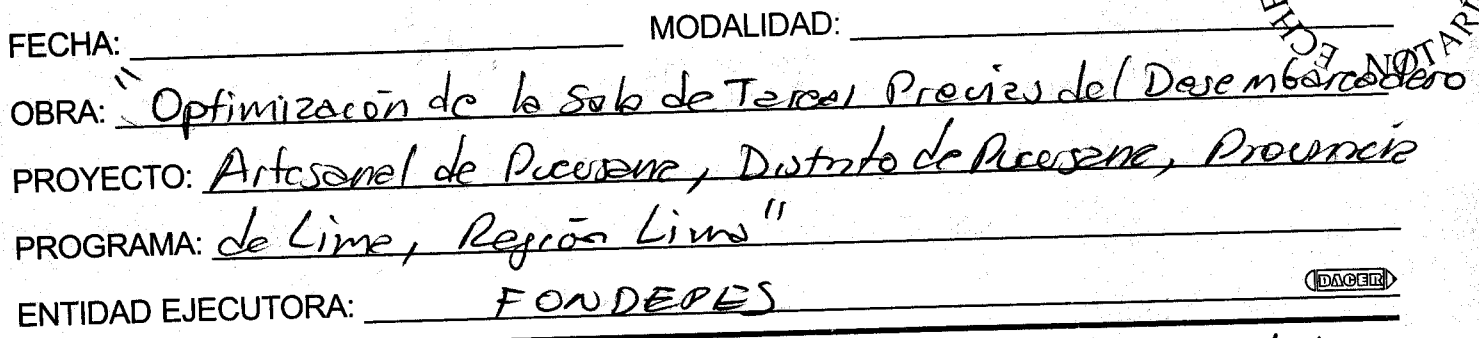 FECHA: MODALIDAD:
OBRA: "Optimización de la Sala de Tareas Previas del Desembarcadero
PROYECTO: Artesanal de Pucusana, Distrito de Pucusana, Provincia
PROGRAMA: de Lima, Región Lima"
ENTIDAD EJECUTORA: FONDEPES
DACER
NOTAR